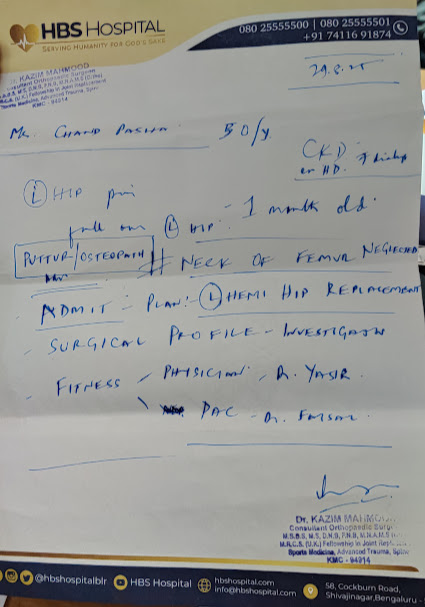 HBS HOSPITAL
SERVING HUMANITY FOR GOD'S SAKE
080 25555500 | 080 25555501
+91 74116 91874
Dr. KAZIM MAHMOOD
Consultant Orthopaedic Surgeon
KMC - 94914
29.8.25
Mr. CHAND PASHA 50/y
CKD
on HD.
(L) HIP pain
- 1 month old.
fall on (L) HIP.
PUTTUR/OSTEOPATH
# NECK OF FEMUR NEGLECTED
- ADMIT - PLAN:- (L) HEMI HIP REPLACEMENT
- SURGICAL PROFILE - INVESTIGATION
- FITNESS - PHYSICIAN - Dr. YASIR.
PAC - Dr. FAISAL.
Dr. KAZIM MAHMOOD
Consultant Orthopaedic Surge
M.B.B.S, M.S, D.N.B, F.N.B, M.N.A.M.S
M.R.C.S. (U.K.) Fellowship in Joint Repl
Sports Medicine, Advanced Trauma, Spine
KMC - 94914
@hbshospitalblr
HBS Hospital
hbshospital.com
info@hbshospital.com
58, Cockburn Road,
Shivajinagar, Bengaluru -